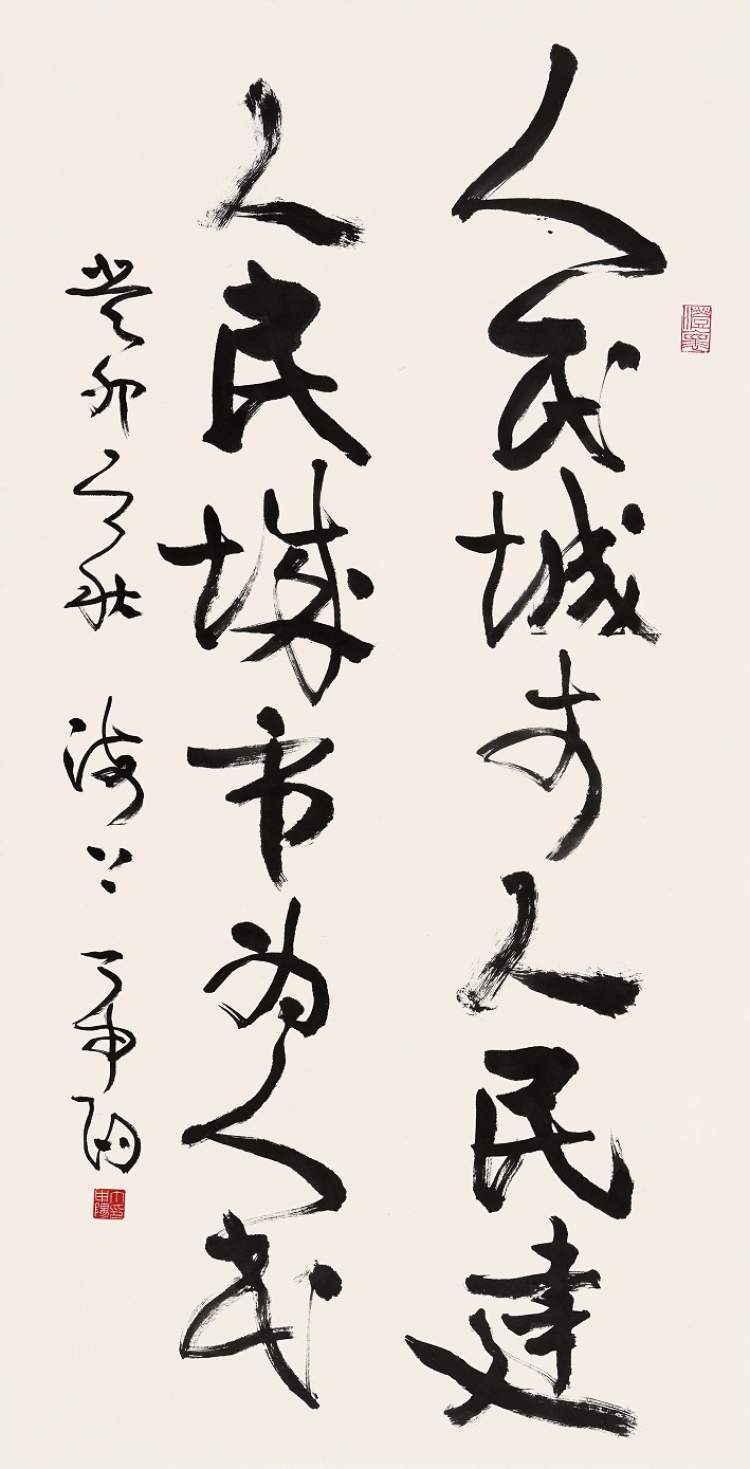 人民城市人民建
人民城市为人民
癸卯秋 海上 丁申阳